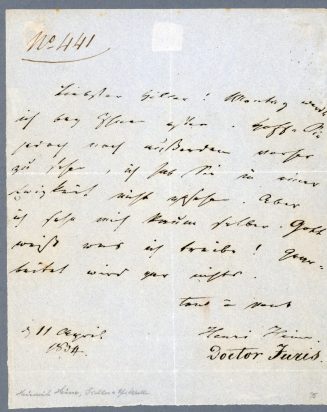 No 441
Liebster Hiller! Montag werde
ich bey Ihnen essen. Hoffe Sie
jedoch noch außerdem vorher
zu sehen, ich hab Sie in einer
Ewigkeit nicht gesehen. Aber
ich sehe mich kaum selber. Gott
weiß was ich treibe! Gear-
beitet wird gar nichts.
tout à vous
Henri Heine
Doctor Juris.
d 11 April
1834.
Heinrich Heine,